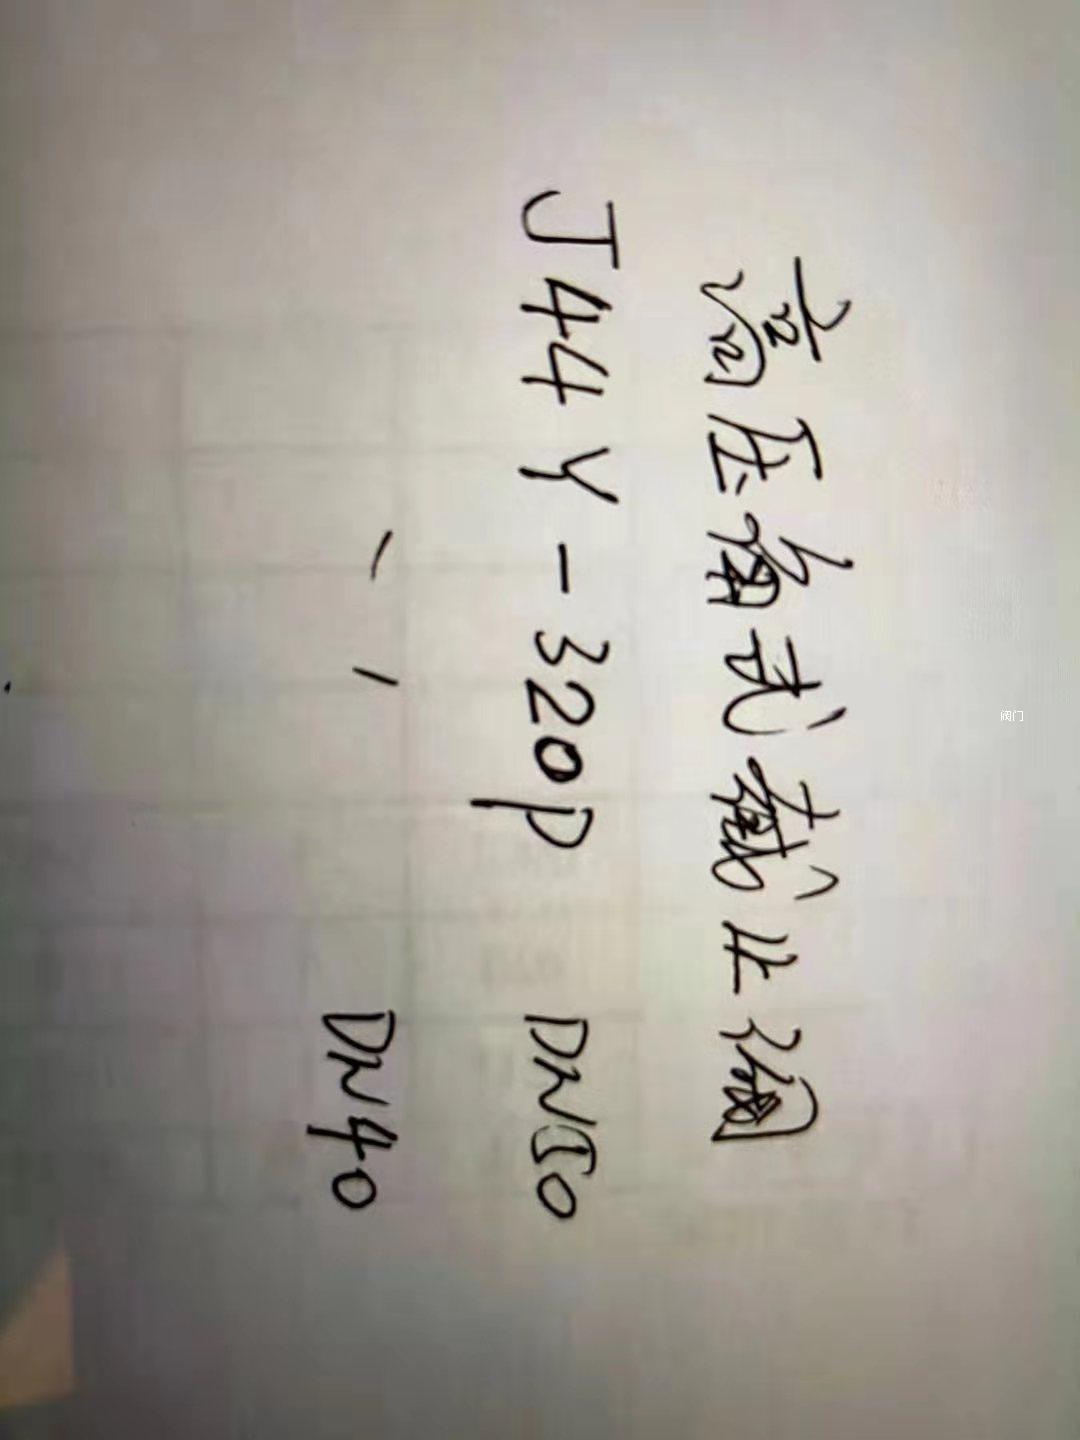 高压角式截止阀
J44Y-320P DN50
、, DN40
阀门